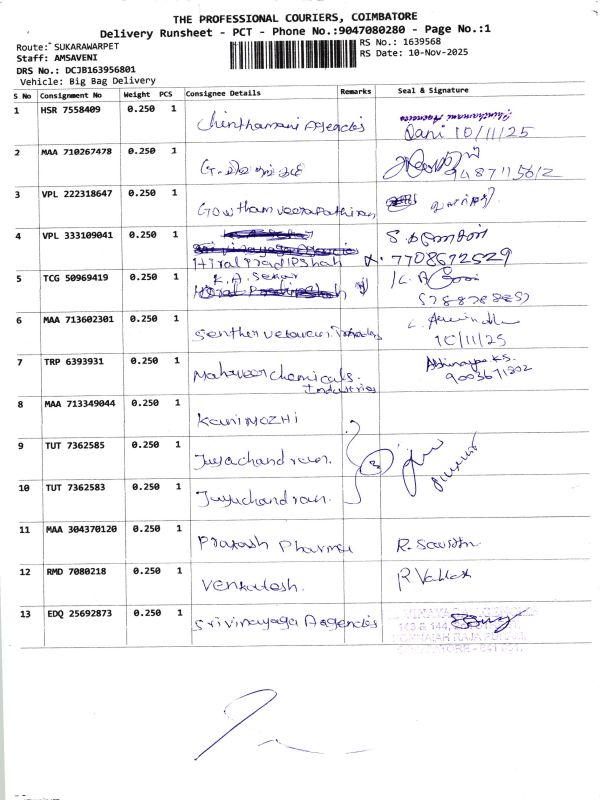 THE PROFESSIONAL COURIERS, COIMBATORE
Delivery Runsheet - PCT - Phone No.:9047080280 - Page No.:1
Route: SUKARAWARPET
RS No.: 1639568
Staff: AMSAVENI
RS Date: 10-Nov-2025
DRS No.: DCJB163956801
Vehicle: Big Bag Delivery
S No Consignment No Weight PCS Consignee Details Remarks Seal & Signature
1 HSR 7558409 0.250 1 Chinthamani Agencies Rani 10/11/25
2 MAA 710267478 0.250 1 G.
3 VPL 222318647 0.250 1 Gowtham veerapathiran
4 VPL 333109041 0.250 1
Hiral Pradipshah 7708672529
5 TCG 50969419 0.250 1 K.A. Sekar
6 MAA 713602301 0.250 1 Senthil
10/11/25
7 TRP 6393931 0.250 1 Mahaveer Chemicals. Abhinaya K.S.
Industries 9003671302
8 MAA 713349044 0.250 1 KaniMOZHI
9 TUT 7362585 0.250 1 Jeyachandran. 3
10 TUT 7362583 0.250 1 Jeyachandran.
11 MAA 304370120 0.250 1 Prakash Pharma R.
12 RMD 7080218 0.250 1 Venkatesh.
13 EDQ 25692873 0.250 1 Srivinayaga Agencies